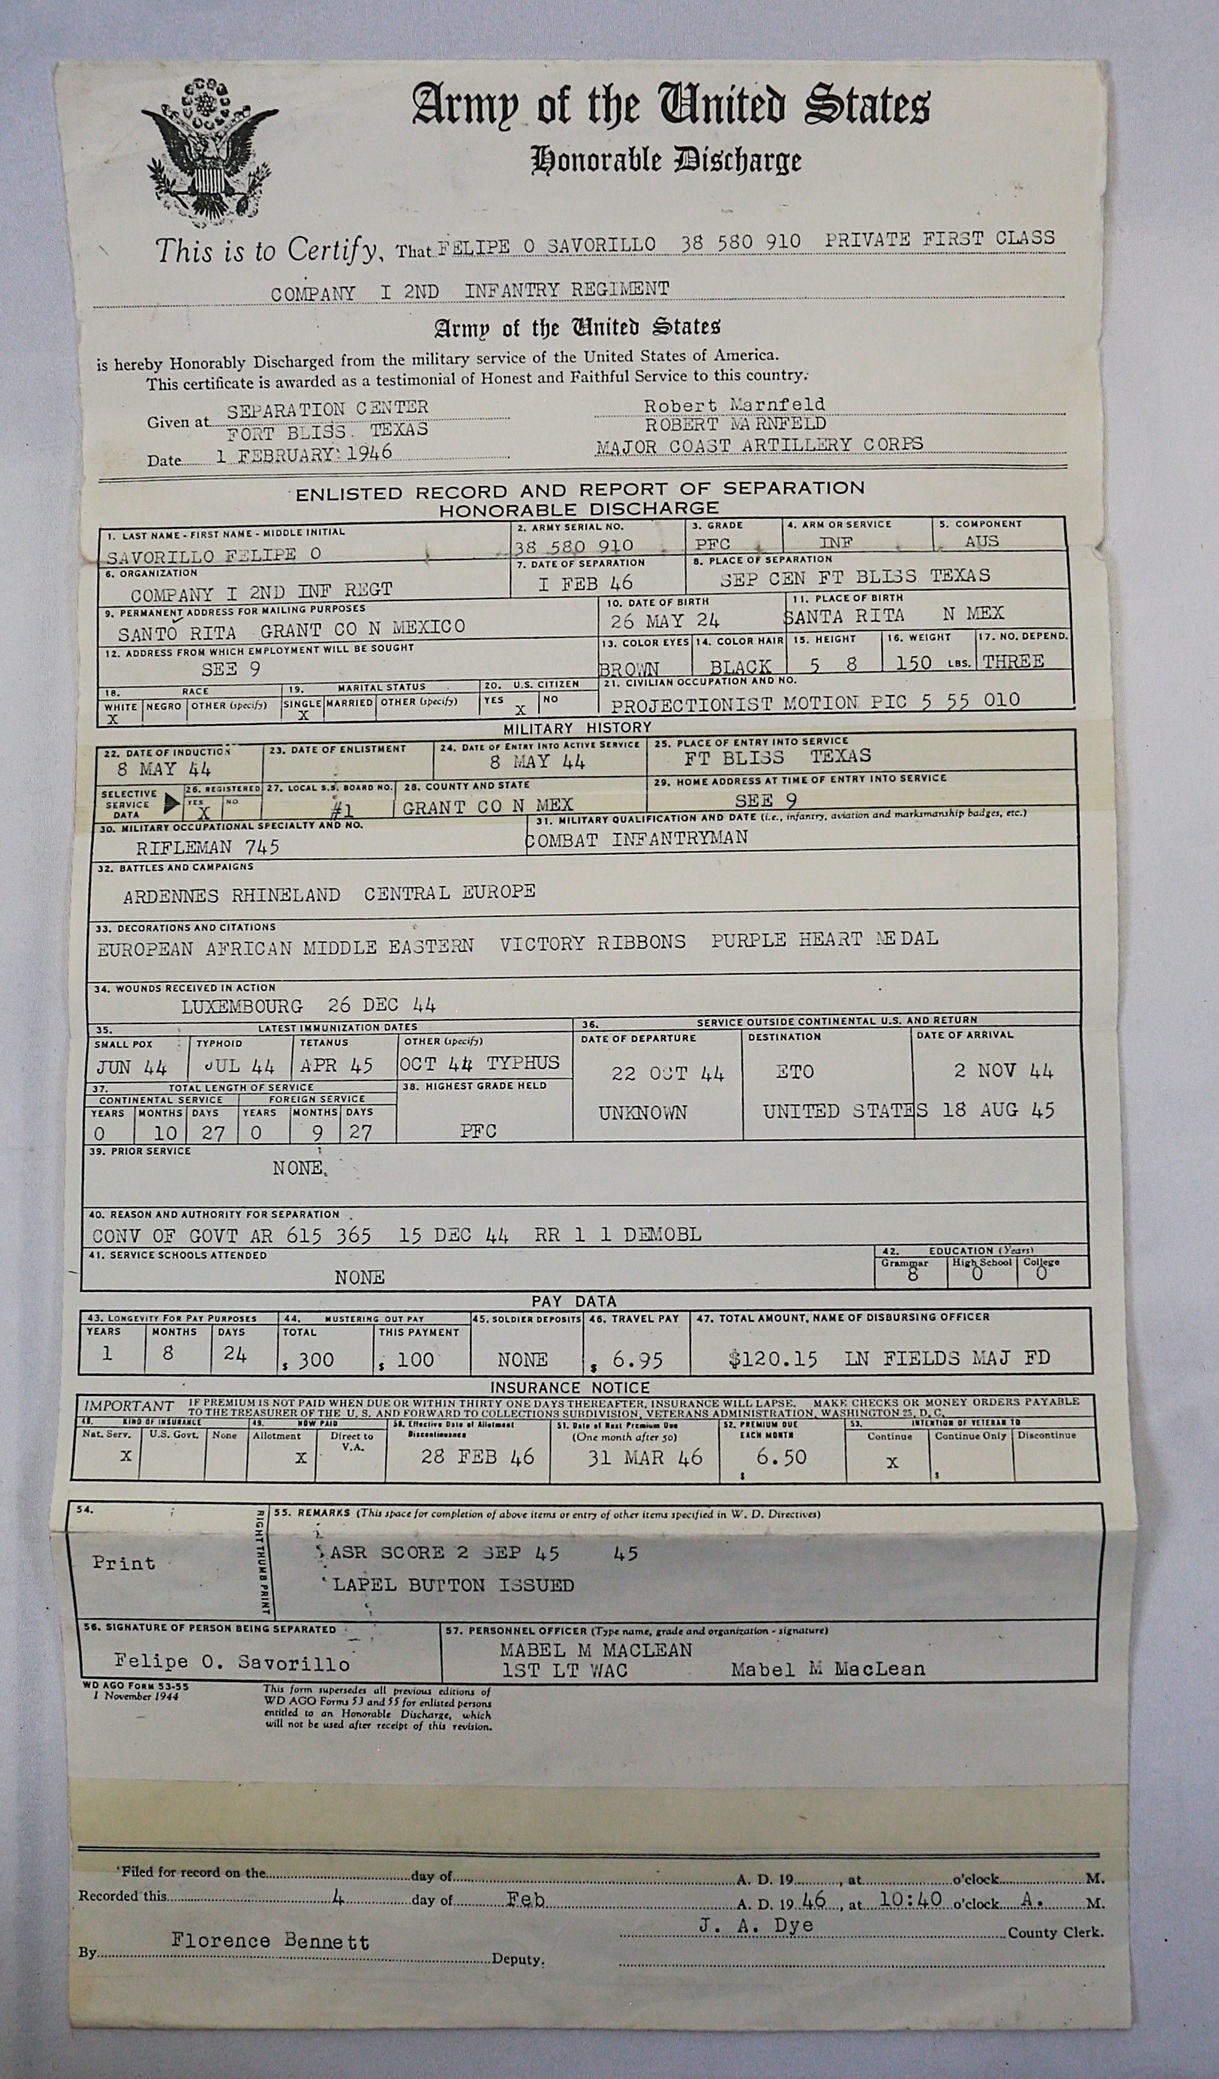 Army of the United States
Honorable Discharge
This is to Certify, That FELIPE O SAVORILLO 38 580 910 PRIVATE FIRST CLASS
COMPANY I 2ND INFANTRY REGIMENT
Army of the United States
is hereby Honorably Discharged from the military service of the United States of America.
This certificate is awarded as a testimonial of Honest and Faithful Service to this country.
Given at SEPARATION CENTER
FORT BLISS. TEXAS
Date 1 FEBRUARY 1946
Robert Marnfeld
ROBERT MARNFELD
MAJOR COAST ARTILLERY CORPS
ENLISTED RECORD AND REPORT OF SEPARATION
HONORABLE DISCHARGE
1. LAST NAME - FIRST NAME - MIDDLE INITIAL 2. ARMY SERIAL NO. 3. GRADE 4. ARM OR SERVICE 5. COMPONENT
SAVORILLO FELIPE O 38 580 910 PFC INF AUS
6. ORGANIZATION 7. DATE OF SEPARATION 8. PLACE OF SEPARATION
COMPANY I 2ND INF REGT 1 FEB 46 SEP CEN FT BLISS TEXAS
9. PERMANENT ADDRESS FOR MAILING PURPOSES 10. DATE OF BIRTH 11. PLACE OF BIRTH
SANTO RITA GRANT CO N MEXICO 26 MAY 24 SANTA RITA N MEX
12. ADDRESS FROM WHICH EMPLOYMENT WILL BE SOUGHT 13. COLOR EYES 14. COLOR HAIR 15. HEIGHT 16. WEIGHT 17. NO. DEPEND.
SEE 9 BROWN BLACK 5 8 150 LBS. THREE
18. RACE 19. MARITAL STATUS 20. U.S. CITIZEN 21. CIVILIAN OCCUPATION AND NO.
WHITE NEGRO OTHER (specify) SINGLE MARRIED OTHER (specify) YES NO
X X X PROJECTIONIST MOTION PIC 5 55 010
MILITARY HISTORY
22. DATE OF INDUCTION 23. DATE OF ENLISTMENT 24. DATE OF ENTRY INTO ACTIVE SERVICE 25. PLACE OF ENTRY INTO SERVICE
8 MAY 44 8 MAY 44 FT BLISS TEXAS
SELECTIVE SERVICE DATA 26. REGISTERED 27. LOCAL S.S. BOARD NO. 28. COUNTY AND STATE 29. HOME ADDRESS AT TIME OF ENTRY INTO SERVICE
YES NO
X #1 GRANT CO N MEX SEE 9
30. MILITARY OCCUPATIONAL SPECIALTY AND NO. 31. MILITARY QUALIFICATION AND DATE (i.e., infantry, aviation and marksmanship badges, etc.)
RIFLEMAN 745 COMBAT INFANTRYMAN
32. BATTLES AND CAMPAIGNS
ARDENNES RHINELAND CENTRAL EUROPE
33. DECORATIONS AND CITATIONS
EUROPEAN AFRICAN MIDDLE EASTERN VICTORY RIBBONS PURPLE HEART MEDAL
34. WOUNDS RECEIVED IN ACTION
LUXEMBOURG 26 DEC 44
35. LATEST IMMUNIZATION DATES 36. SERVICE OUTSIDE CONTINENTAL U.S. AND RETURN
SMALL POX TYPHOID TETANUS OTHER (specify) DATE OF DEPARTURE DESTINATION DATE OF ARRIVAL
JUN 44 JUL 44 APR 45 OCT 44 TYPHUS 22 OCT 44 ETO 2 NOV 44
37. TOTAL LENGTH OF SERVICE 38. HIGHEST GRADE HELD
CONTINENTAL SERVICE FOREIGN SERVICE
YEARS MONTHS DAYS YEARS MONTHS DAYS UNKNOWN UNITED STATES 18 AUG 45
0 10 27 0 9 27 PFC
39. PRIOR SERVICE
NONE
40. REASON AND AUTHORITY FOR SEPARATION
CONV OF GOVT AR 615 365 15 DEC 44 RR 1 1 DEMOBL
41. SERVICE SCHOOLS ATTENDED 42. EDUCATION (Years)
Grammar High School College
NONE 8 0 0
PAY DATA
43. LONGEVITY FOR PAY PURPOSES 44. MUSTERING OUT PAY 45. SOLDIER DEPOSITS 46. TRAVEL PAY 47. TOTAL AMOUNT, NAME OF DISBURSING OFFICER
YEARS MONTHS DAYS TOTAL THIS PAYMENT
1 8 24 $ 300 $ 100 NONE $ 6.95 $120.15 LN FIELDS MAJ FD
INSURANCE NOTICE
IMPORTANT IF PREMIUM IS NOT PAID WHEN DUE OR WITHIN THIRTY ONE DAYS THEREAFTER, INSURANCE WILL LAPSE. MAKE CHECKS OR MONEY ORDERS PAYABLE
TO THE TREASURER OF THE U. S. AND FORWARD TO COLLECTIONS SUBDIVISION, VETERANS ADMINISTRATION, WASHINGTON 25, D. C.
48. KIND OF INSURANCE 49. HOW PAID 50. Effective Date of Allotment Discontinuance 51. Date of Next Premium Due 52. PREMIUM DUE EACH MONTH 53. INTENTION OF VETERAN TO
Nat. Serv. U.S. Govt. None Allotment Direct to V.A. (One month after 50) Continue Continue Only Discontinue
X X 28 FEB 46 31 MAR 46 $ 6.50 X $
54. RIGHT THUMB PRINT 55. REMARKS (This space for completion of above items or entry of other items specified in W. D. Directives)
Print ASR SCORE 2 SEP 45 45
LAPEL BUTTON ISSUED
56. SIGNATURE OF PERSON BEING SEPARATED 57. PERSONNEL OFFICER (Type name, grade and organization - signature)
MABEL M MACLEAN
Felipe O. Savorillo 1ST LT WAC Mabel M MacLean
WD AGO FORM 53-55
1 November 1944
This form supersedes all previous editions of
WD AGO Forms 53 and 55 for enlisted persons
entitled to an Honorable Discharge, which
will not be used after receipt of this revision.
Filed for record on the day of A. D. 19 , at o'clock M.
Recorded this 4 day of Feb A. D. 19 46 , at 10:40 o'clock A. M.
J. A. Dye County Clerk.
By Florence Bennett Deputy.